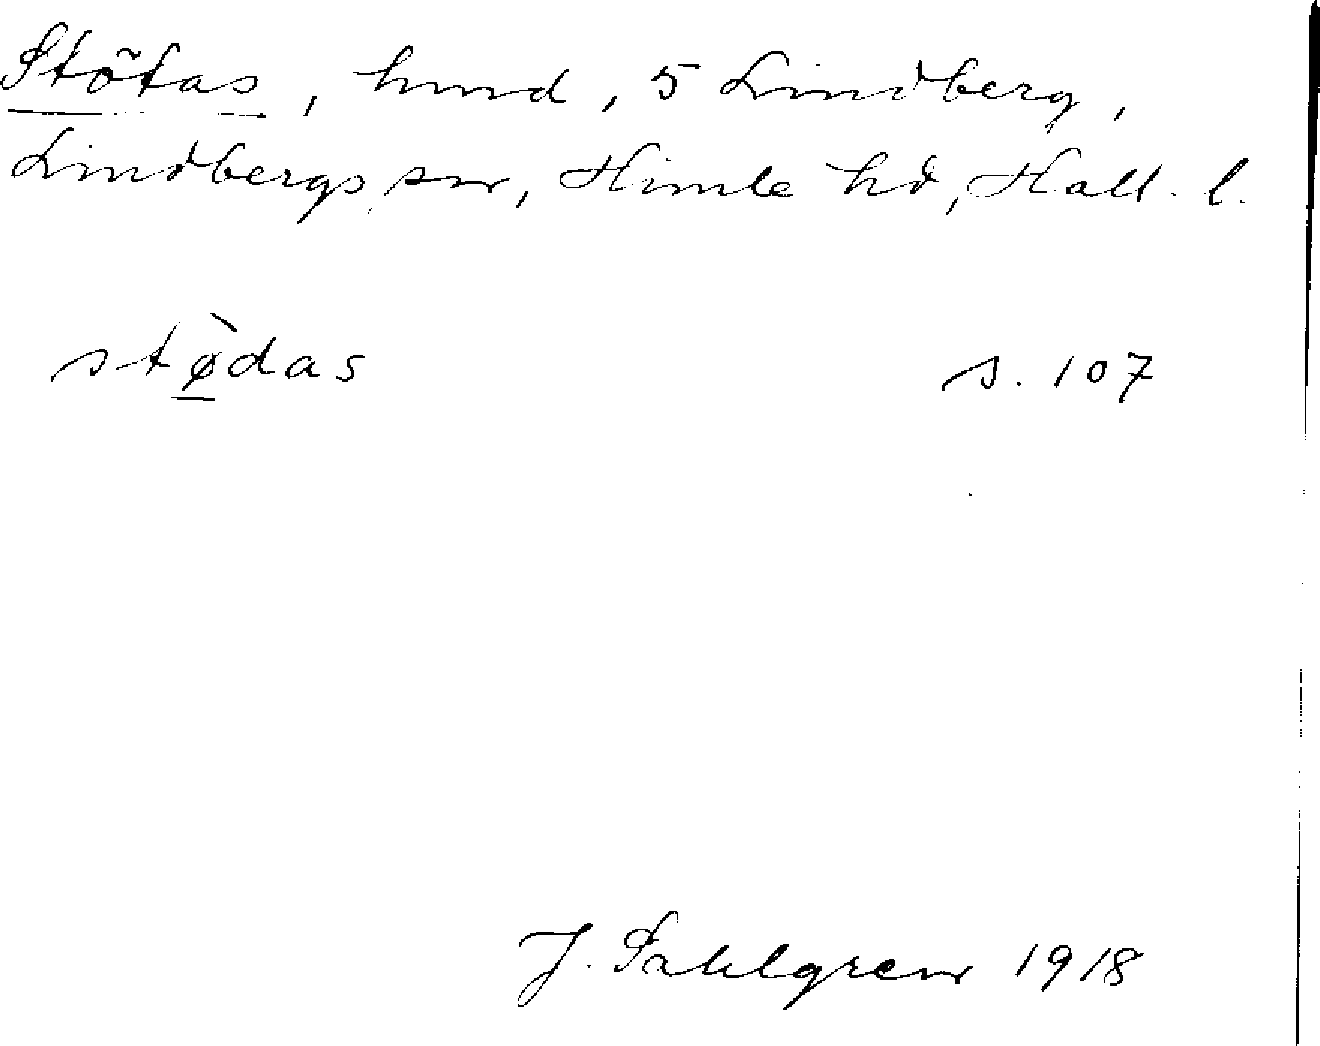 Stötas, hmd, 5 Lindberg,
Lindbergs sn, Himle hd, Hall. l.
stø̱̀das s. 107
J. Sahlgren 1918